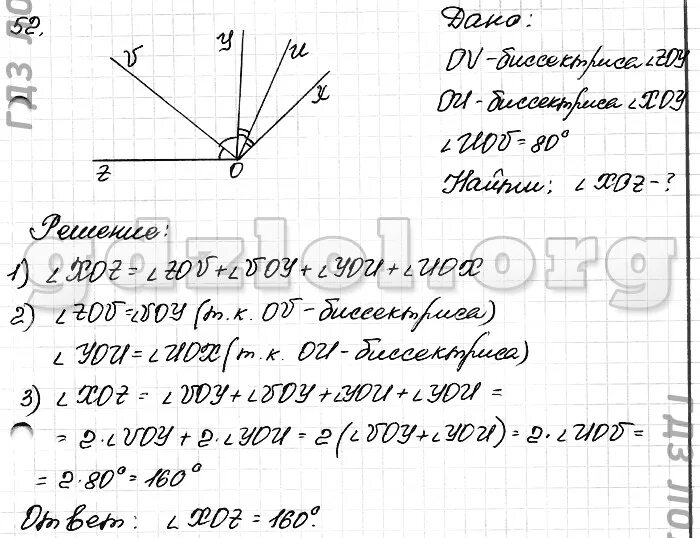 52.
V
У
U
X
Z
O
Дано:
OV - биссектриса ∠ZOY
OU - биссектриса ∠XOY
∠UOV = 80°
Найти: ∠XOZ - ?
Решение:
1) ∠XOZ = ∠ZOV + ∠VOY + ∠YOU + ∠UOX
2) ∠ZOV = ∠VOY (т.к. OV - биссектриса)
∠YOU = ∠UOX (т.к. OU - биссектриса)
3) ∠XOZ = ∠VOY + ∠VOY + ∠YOU + ∠YOU =
= 2·∠VOY + 2·∠YOU = 2(∠VOY + ∠YOU) = 2·∠UOV =
= 2·80° = 160°
Ответ: ∠XOZ = 160°.
gdzlol.org
ГДЗ ЛО
ГДЗ ЛО